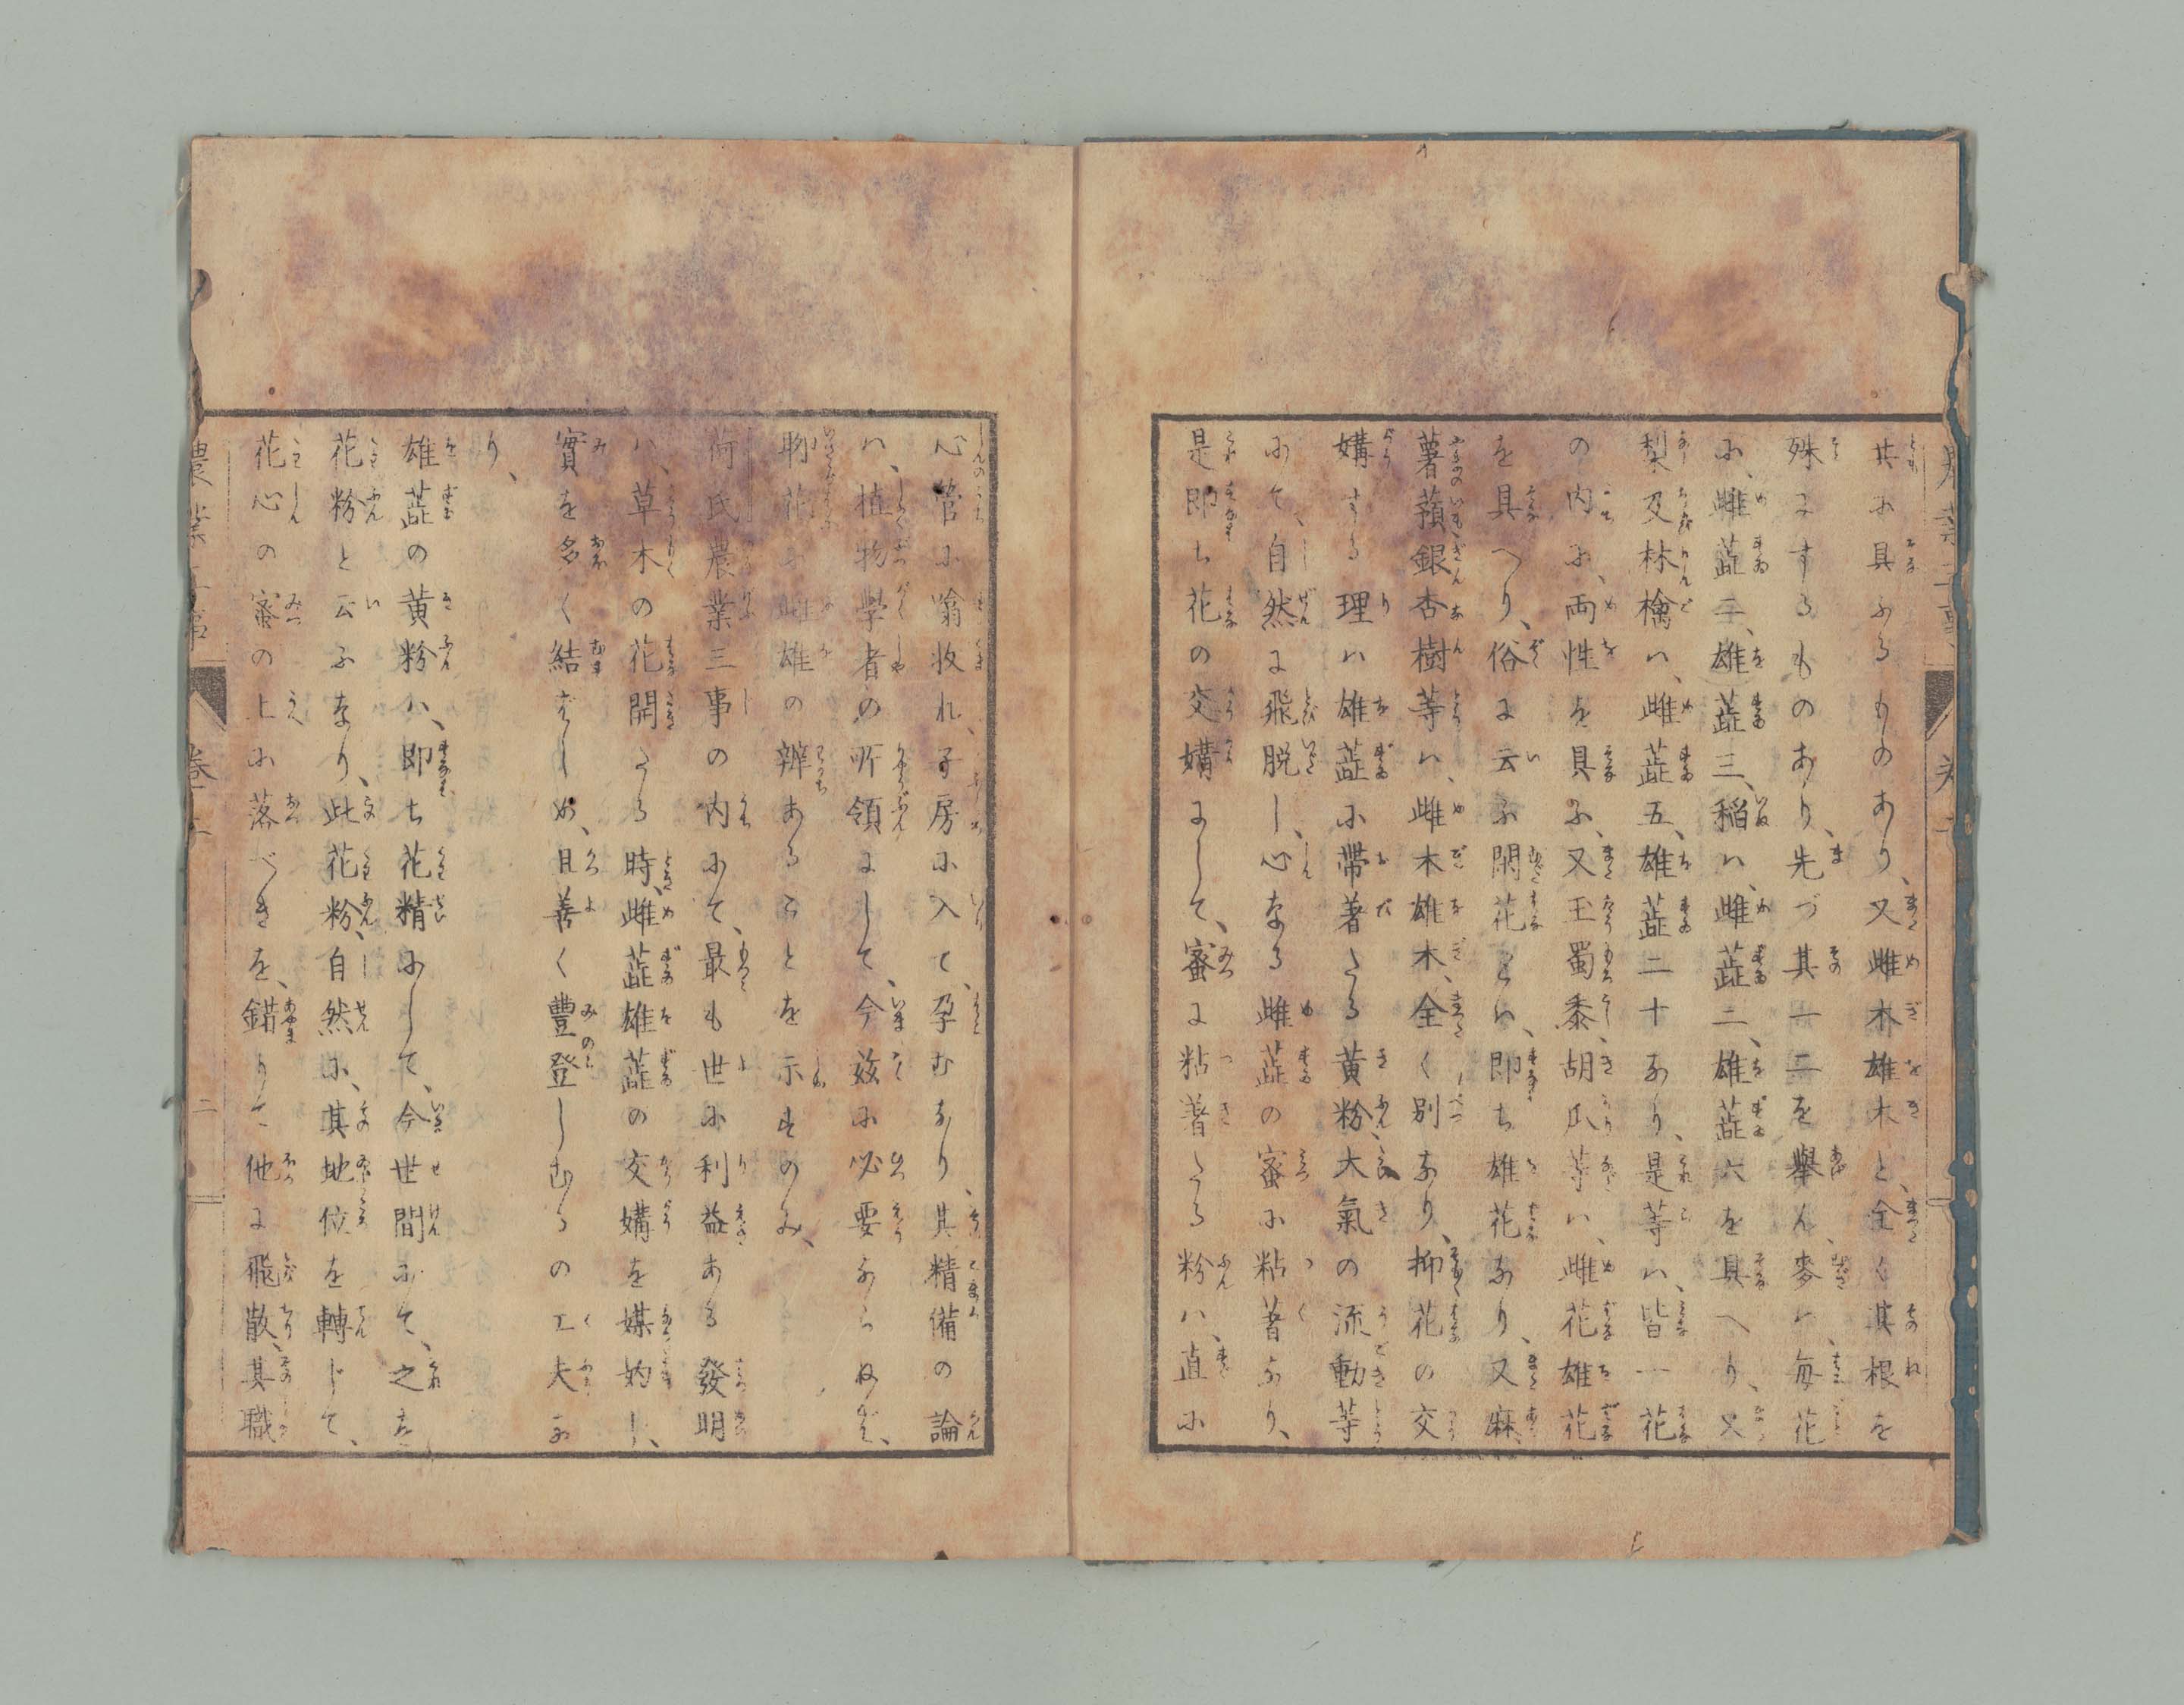 共に具ふるものあり、又雌木雄木と全く其根を
殊にするものあり、先づ其一二を擧ん、麥ハ、毎花
に、雌蕋二、雄蕋三、稲ハ、雌蕋二、雄蕋六を具へり、又
梨及林檎ハ、雌蕋五、雄蕋二十あり、是等ハ、皆一花
の内に、両性を具ふ、又玉蜀黍、胡瓜等ハ、雌花雄花
を具へり、俗に云ふ閑花とハ、即ち雄花なり、又麻、
薯蕷、銀杏樹等ハ、雌木雄木、全く別なり、抑花の交
媾する理ハ雄蕋に帶著たる黄粉、大氣の流動等
にて、自然に飛脱し、心なる雌蕋の蜜に粘著なり、
是即ち花の交媾にして、蜜に粘著たる粉ハ、直に
心管に噏收れ、子房に入て、孕むなり、其精備の論
ハ、植物學者の所領にして、今玆に必要ならねば、
聊花に雌雄の辨あることを示すのみ、
荷氏農業三事の内にて、最も世に利益ある發明
ハ、草木の花開たる時、雌蕋雄蕋の交媾を媒妁し、
實を多く結ばしめ、且善く豊登しむるの工夫な
り、
雄蕋の黄粉ハ、即ち花精にして、今世間にて、之を
花粉と云ふなり、此花粉、自然に、其地位を轉じて、
花心の蜜の上に落べきを、錯りて他に飛散、其職
農業三事 巻上 二